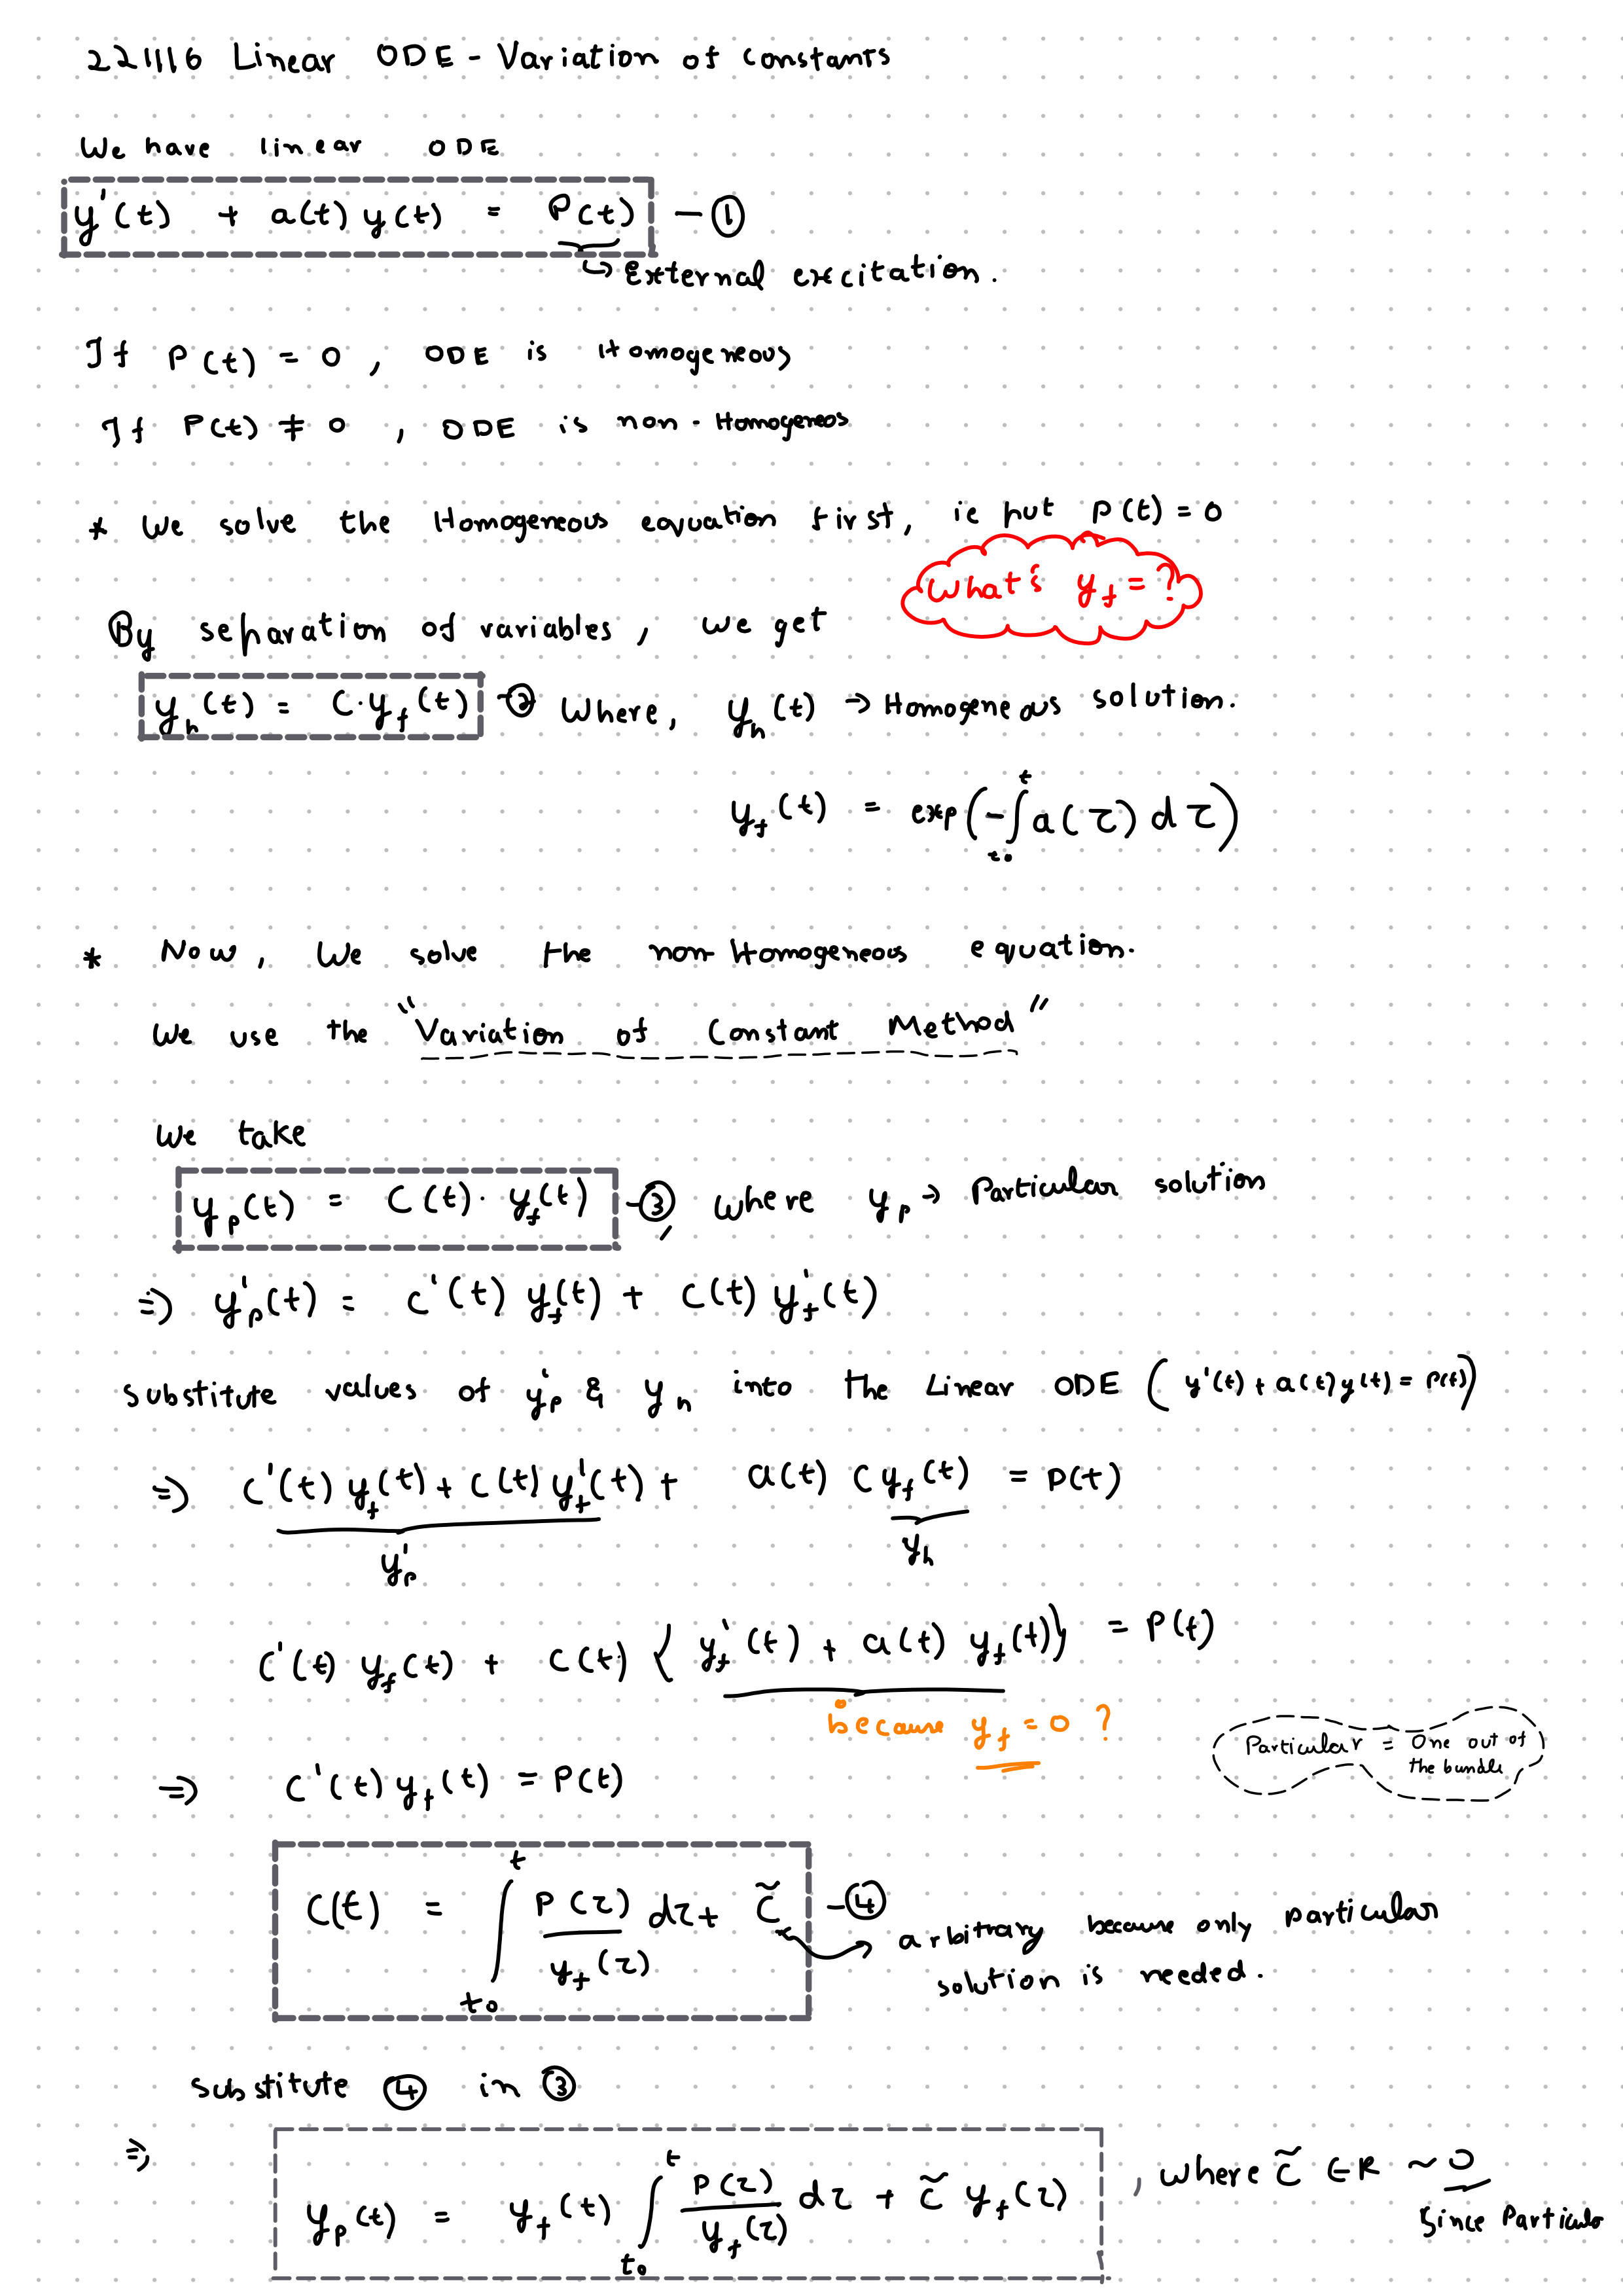 221116 Linear ODE - Variation of constants
We have linear ODE
y'(t) + a(t) y(t) = P(t) - ①
↳ External excitation.
If P(t) = 0 , ODE is Homogeneous
If P(t) ≠ 0 , ODE is non-Homogeneos
* We solve the Homogeneous equation first, ie put P(t) = 0
What's y_f = ?
By separation of variables, we get
y_h(t) = C·y_f(t) - ② Where, y_h(t) → Homogeneous solution.
y_f(t) = exp(-∫_{t0}^{t} a(τ) dτ)
* Now, We solve the non-Homogeneous equation.
We use the "Variation of Constant Method"
We take
y_p(t) = C(t)· y_f(t) - ③, where y_p → Particular solution
⇒ y'_p(t) = C'(t) y_f(t) + C(t) y'_f(t)
Substitute values of y'_p & y_h into the Linear ODE (y'(t) + a(t) y(t) = P(t))
⇒ C'(t) y_f(t) + C(t) y'_f(t) + a(t) C y_f(t) = P(t)
y'_p y_h
C'(t) y_f(t) + C(t) {y'_f(t) + a(t) y_f(t)} = P(t)
because y_f = 0 ?
Particular = One out of
the bundle
⇒ C'(t) y_f(t) = P(t)
C(t) = ∫_{t0}^{t} P(τ)/y_f(τ) dτ + C̃ - ④
arbitrary because only particular
solution is needed.
Substitute ④ in ③
⇒ y_p(t) = y_f(t) ∫_{t0}^{t} P(τ)/y_f(τ) dτ + C̃ y_f(τ) , where C̃ ∈ R ~ 0
Since Particula